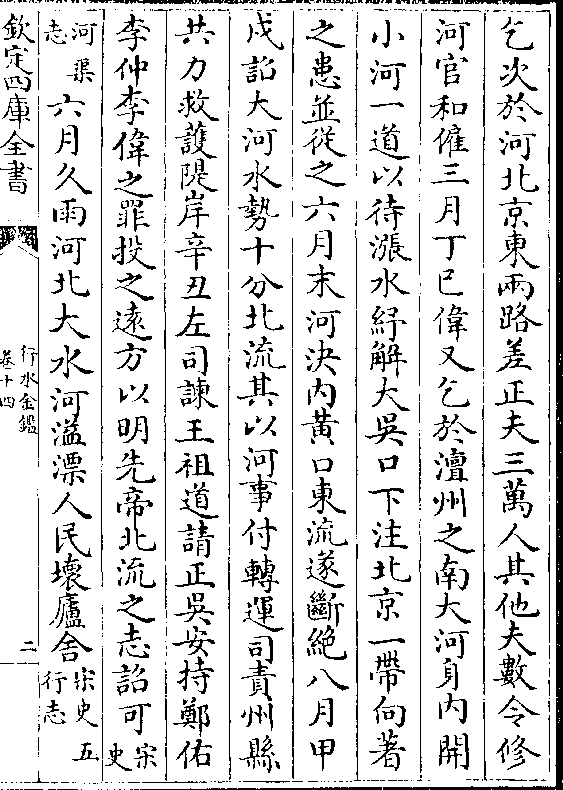 乞次於河北京東兩路差正夫三萬人其他夫數令修
河官和僱三月丁巳偉又乞於澶州之南大河身内開
小河一道以待漲水紓解大吳口下注北京一帶向著
之患並從之六月末河決内黄口東流遂斷絶八月甲
戌詔大河水勢十分北流其以河事付轉運司責州縣
共力救護隄岸辛丑左司諫王祖道請正吳安持鄭佑
李仲李偉之罪投之遠方以明先帝北流之志詔可宋史
河渠志六月久雨河北大水河溢漂人民壞廬舍宋史五行志
欽定四庫全書
行水金鑑
卷十四
二